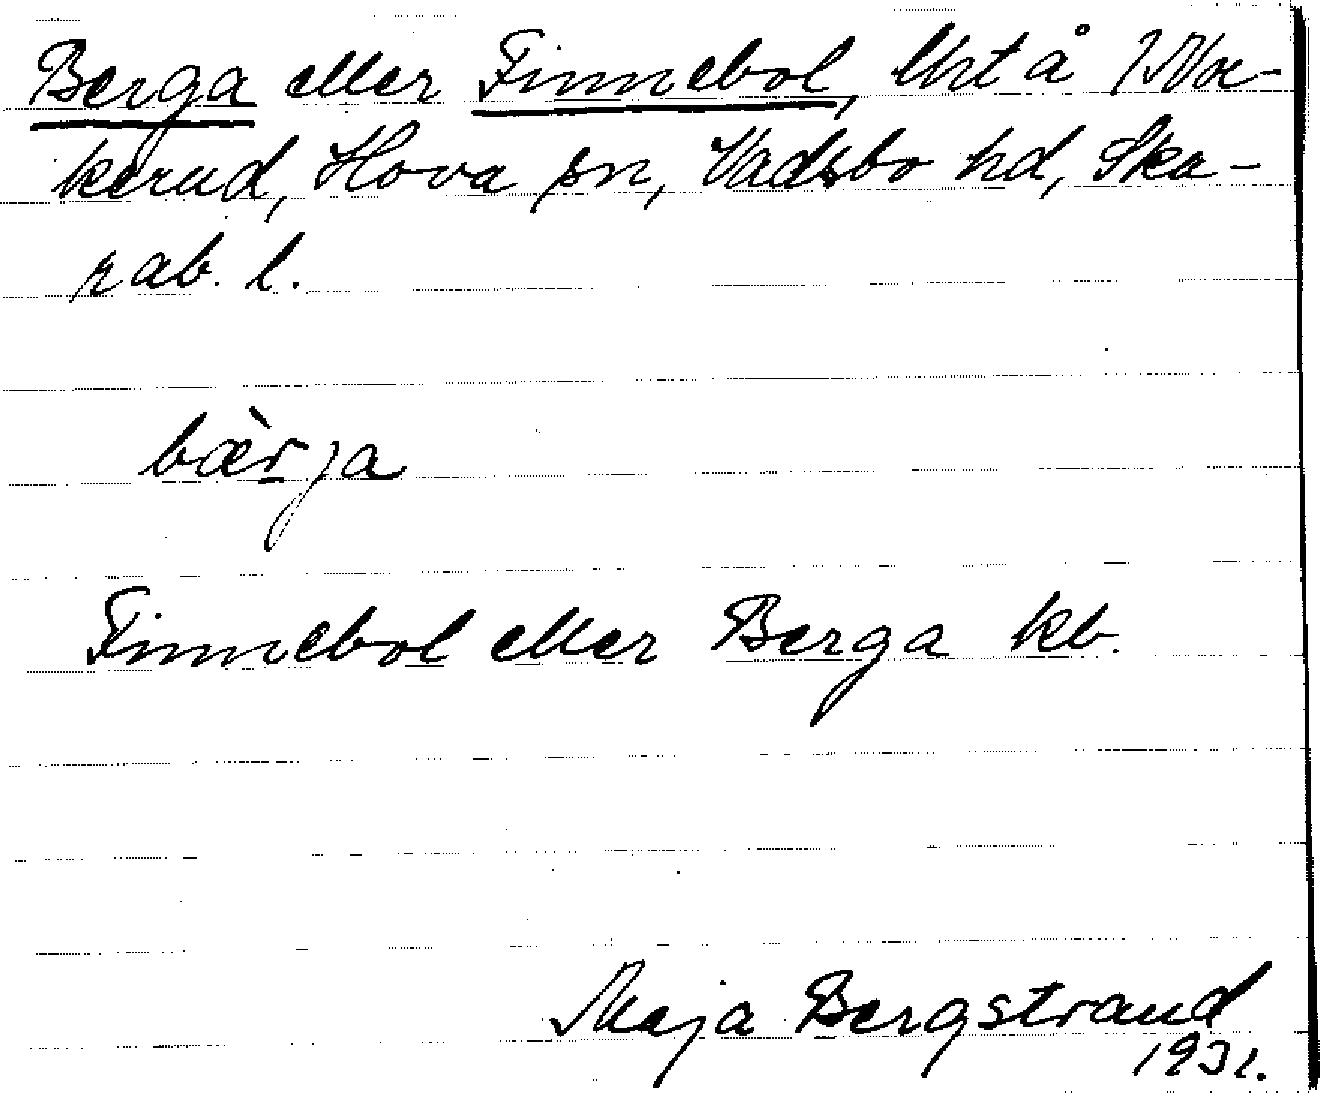 Berga eller Finnebol, lht å
kerud, Hova sn, Vadsbo hd, Ska-
rab. l.
bæ̀rja
Finnebol eller Berga kb.
Maja Bergstrand
1931.